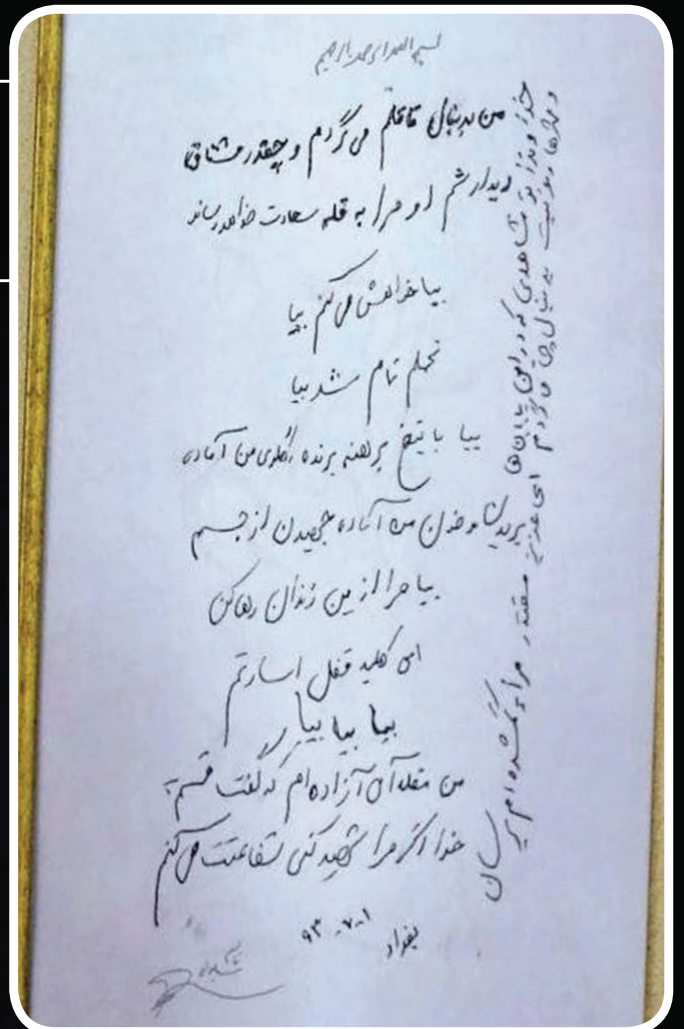 بسم الله الرحمن الرحیم
من بدنبال قاتلم می گردم و چقدر مشتاق
دیدارشم او مرا به قله سعادت خواهد رساند
بیا خواهش می کنم بیا
تحملم تمام شد بیا
بیا با تیغ برهنه برنده گلوی من آماده
بریدن و خون من آماده جهیدن از جسم
بیا مرا از این زندان رها کن
ای کلید قفل اسارتم
بیا بیا بیا
من مقلد آن آزاده ام که گفت قسم به
خدا اگر مرا شهید کنی شفاعتت می کنم
بغداد ۹۳-۷-۱
خداوندا تو شاهدی که در این بیابان‌ها
بدنبال می گردم ای عزیز مقتدر مرا به گمشده ام برسان